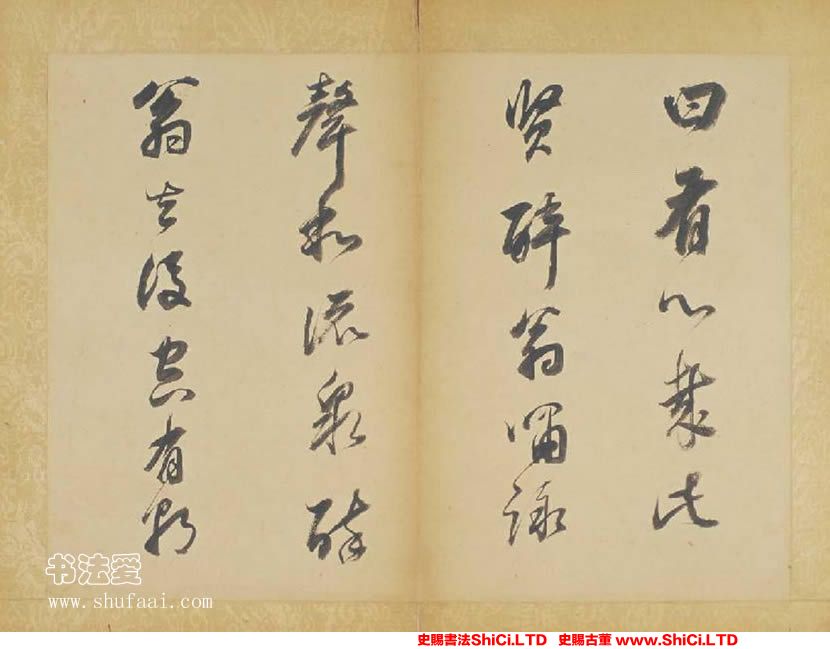 曰有心哉此
賢醉翁嘯詠
聲和流泉醉
翁去後空有朝
书法爱
www.shufaai.com
史賜書法ShiCi.LTD 史賜古董 www.ShiCi.LTD